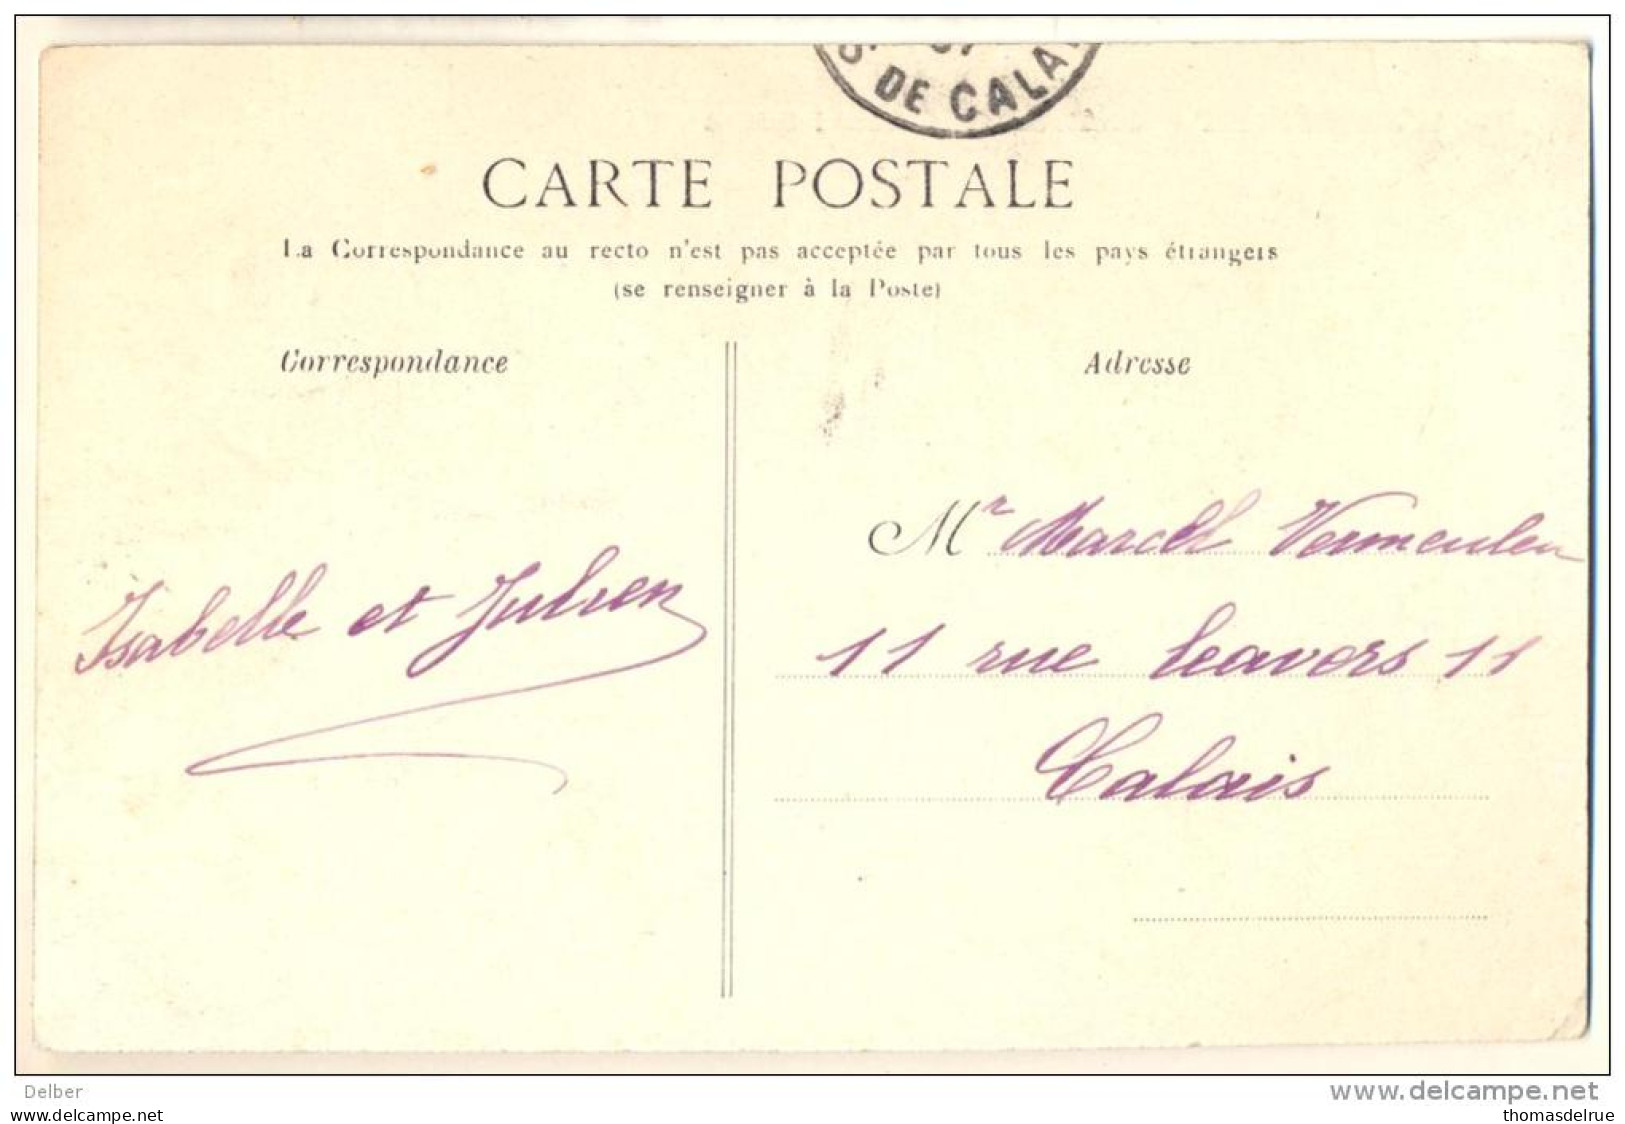 DE CALA
CARTE POSTALE
La Correspondance au recto n'est pas acceptée par tous les pays étrangers
(se renseigner à la Poste)
Correspondance
Adresse
Isabelle et Julien
Mr Marcel Vermeulen
11 rue Leavers 11
Calais
Delber
www.delcampe.net
www.delcampe.net
thomasdelrue